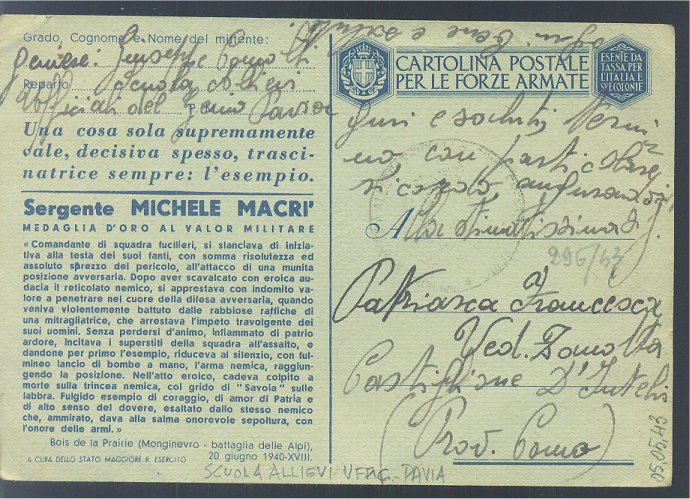 Grado, Cognome e Nome del mittente:
Geniere: Giuseppe
Reparto Scuola Allievi
Ufficiali del Genio Pavia
Una cosa sola supremamente
vale, decisiva spesso, trasci-
natrice sempre: l'esempio.
Sergente MICHELE MACRI'
MEDAGLIA D'ORO AL VALOR MILITARE
« Comandante di squadra fucilieri, si slanciava di inizia-
tiva alla testa dei suoi fanti, con somma risolutezza ed
assoluto sprezzo del pericolo, all'attacco di una munita
posizione avversaria. Dopo aver scavalcato con eroica au-
dacia il reticolato nemico, si apprestava con indomito va-
lore a penetrare nel cuore della difesa avversaria, quando
veniva violentemente battuto dalle rabbiose raffiche di
una mitragliatrice, che arrestava l'impeto travolgente dei
suoi uomini. Senza perdersi d'animo, infiammato di patrio
ardore, incitava i superstiti della squadra all'assalto, e
dandone per primo l'esempio, riduceva al silenzio, con ful-
mineo lancio di bombe a mano, l'arma nemica, raggiun-
gendo la posizione. Nell'atto eroico, cadeva colpito a
morte sulla trincea nemica, col grido di "Savoia" sulle
labbra. Fulgido esempio di coraggio, di amor di Patria e
di alto senso del dovere, esaltato dallo stesso nemico
che, ammirato, dava alla salma onorevole sepoltura, con
l'onore delle armi. »
Bois de la Prairie (Monginevro - battaglia delle Alpi),
20 giugno 1940-XVIII.
A CURA DELLO STATO MAGGIORE R. ESERCITO
SCUOLA ALLIEVI UFFIC. - PAVIA
CARTOLINA POSTALE
PER LE FORZE ARMATE
ESENTE DA
TASSA PER
L'ITALIA E
SUE COLONIE
con particolare
Alla Stimatissima
296/43
Patriarca Francesca
Ved.
Castiglione D'Intelvi
(Prov. Como)
05.05.43